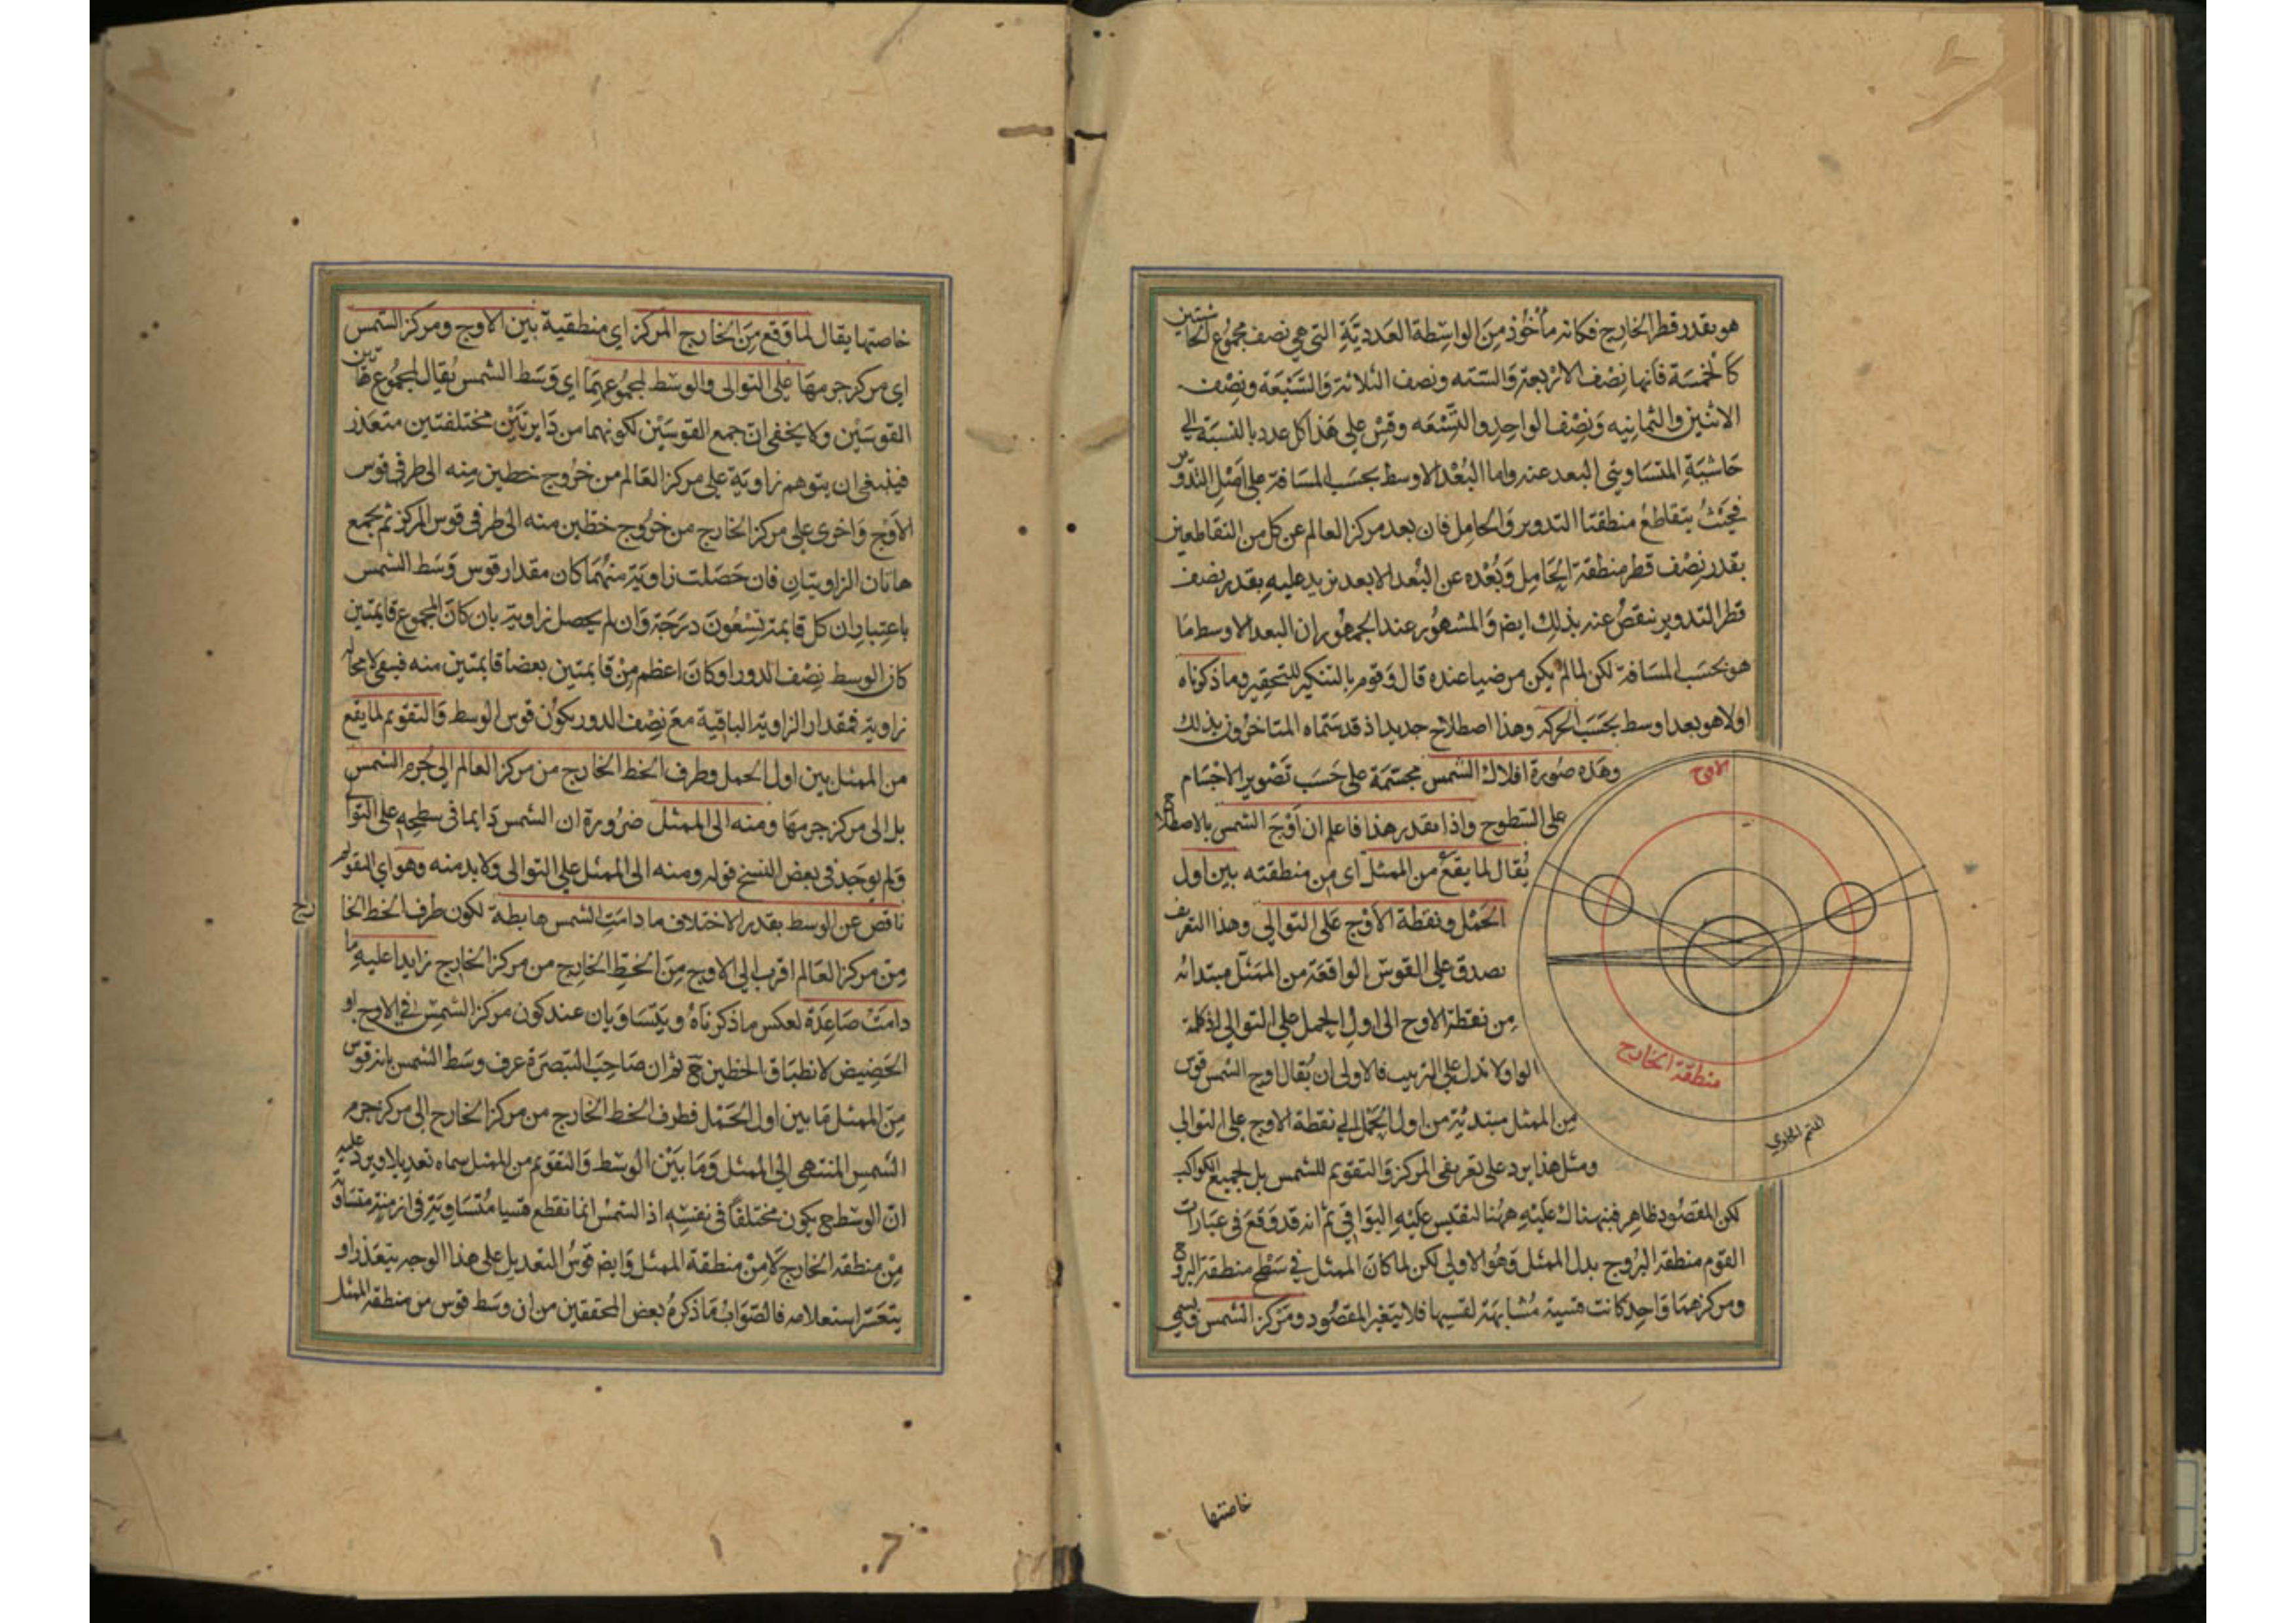 هو بقدر قطر الخارج فكانه مأخوذ من الواسطة العددية التي هي نصف مجموع الحاشيتين
كالخمسة فانها نصف الاربعة والستة ونصف الثلاثة والسبعة ونصف
الاثنين والثمانيه ونصف الواحد والتسعه وقس على هذا كل عدد بالنسبة الى
حاشية المتساويتى البعد عنه واما البعد الاوسط بحسب المسافة على اصل التدوير
فحيث يتقاطع منطقتا التدوير والحامل فان بعد مركز العالم عن كل من التقاطعين
بقدر نصف قطر منطقة الحامل وبعده عن البعد الابعد يزيد عليه بقدر نصف
قطر التدوير ينقص عنه بذلك ايض والمشهور عند الجمهور ان البعد الاوسط ما
هو بحسب المسافة لكن لما لم يكن مرضيا عنده قال وقوم بالتنكير للتحقير وما ذكرناه
اولا هو بعد اوسط بحسب الحركه وهذا اصطلاح جديد اذ قد سماه المتاخرون بذلك
وهذه صورة افلاك الشمس مجسمة على حسب تصوير الاجسام
على السطوح واذا تقدر هذا فاعلم ان اوج الشمس بالاصطلاح
يقال لما يقع من الممثل اى من منطقته بين اول
الحمل ونقطة الاوج على التوالي وهذا التعريف
يصدق على القوس الواقعة من الممثل مبتدائه
من نقطة الاوج الى اول الحمل على التوالي اذ كلمة
الواو لا تدل على الترتيب فالاولى ان يقال اوج الشمس قوس
من الممثل مبتدئة من اول الحمل الى نقطة الاوج على التوالي
ومثل هذا يرد على تعريفى المركز والتقويم للشمس بل لجميع الكواكب
لكن المقصود ظاهر فنبهناك عليه ههنا لتقيس عليه البواقي ثم انه قد وقع في عبارات
القوم منطقة البروج بدل الممثل وهو الاولى لكن لما كان الممثل في سطح منطقة البروج
ومركزهما واحد كانت قسيه مشابهة لقسيها فلا يتغير المقصود ومركز الشمس ويسمى
الاوج
منطقة الخارج
المتمم الحاوي
خاصتها
خاصتها يقال لما وقع من الخارج المركز اي منطقية بين الاوج ومركز الشمس
اي مركز جرمها على التوالى والوسط لمجموعهما اي وسط الشمس يقال لمجموع هاتين
القوسين ولا يخفى ان جمع القوسين لكونهما من دايرتين مختلفتين متعذر
فينبغى ان يتوهم زاوية على مركز العالم من خروج خطين منه الى طرفى قوس
الاوج واخرى على مركز الخارج من خروج خطين منه الى طرفى قوس المركز ثم يجمع
هاتان الزاويتان فان حصلت زاوية منهما كان مقدار قوس وسط الشمس
باعتبار ان كل قايمة تسعون درجة وان لم يحصل زاوية بان كان المجموع قايمتين
كان الوسط نصف الدور او كان اعظم من قايمتين بعضا قايمتين منه فيبقى لا محاله
زاوية فمقدار الزاوية الباقية مع نصف الدور يكون قوس الوسط والتقويم لما يقع
من الممثل بين اول الحمل وطرف الخط الخارج من مركز العالم الى جرم الشمس
بل الى مركز جرمها ومنه الى الممثل ضرورة ان الشمس دايما فى سطحه على التوالى
ولم يوجد فى بعض النسخ قوله ومنه الى الممثل على التوالى ولا بد منه وهو اي التقويم
ناقص عن الوسط بقدر الاختلاف ما دامت الشمس هابطة لكون طرف الخط الخارج
من مركز العالم اقرب الى الاوج من الخط الخارج من مركز الخارج زايدا عليه ما
دامت صاعدة لعكس ما ذكرناه ويتساويان عند كون مركز الشمس في الاوج او
الحضيض لانطباق الخطين ح ثم ان صاحب التبصرة عرف وسط الشمس بانه قوس
من الممثل ما بين اول الحمل فطرف الخط الخارج من مركز الخارج الى مركز جرم
الشمس المنتهى الى الممثل وما بين الوسط والتقويم من الممثل سماه تعديلا ويرد عليه
ان الوسط ح يكون مختلفا في نفسه اذ الشمس انما تقطع قسيا متساوية في ازمنة متساوية
من منطقة الخارج لا من منطقة الممثل وايض قوس التعديل على هذا الوجه يتعذر او
يتعسر استعلامه فالصواب ما ذكره بعض المحققين من ان وسط قوس من منطقة الممثل